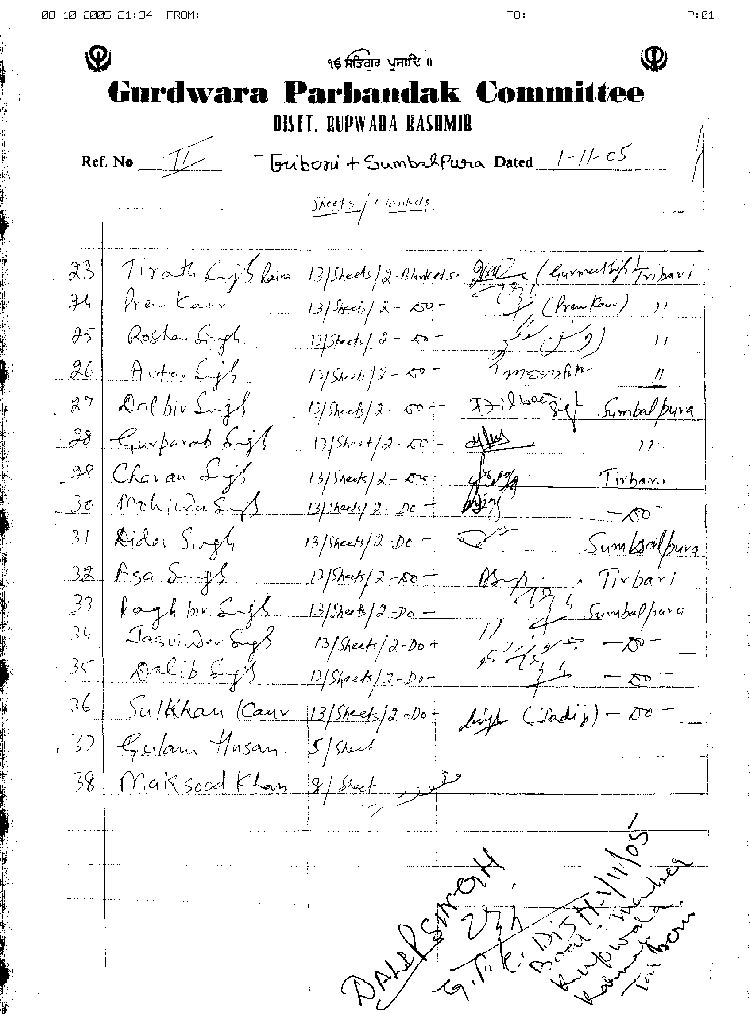 08 10 2005 21:34 FROM: TO: P:01
ੴ ਸਤਿਗੁਰ ਪ੍ਰਸਾਦਿ ॥
Gurdwara Parbandak Committee
DISTT. KUPWARA KASHMIR
Ref. No II Triboni + SumbalPura Dated 1-11-05
Sheets / Blankets
23 Tirath Singh Raina 13/Sheets/2-Blankets (Gurmeet Singh) Tribari
24 Prem Kaur 13/Sheets/2-DO- (Prem Kaur) "
25 Roshan Singh 13/Sheet/2-DO- "
26 Avtar Singh 13/Sheet/2-DO- "
27 Dalbir Singh 13/Sheets/2-DO- Sumbalpura
28 Gurparab Singh 13/Sheet/2-DO- "
29 Charan Singh 13/Sheets/2-Do- Tirbari
30 Mohinder Singh 13/Sheets/2-Do- -DO-
31 Didar Singh 13/Sheets/2-Do- Sumbalpura
32 Asa Singh 13/Sheets/2-Do- Tirbari
33 Raghbir Singh 13/Sheets/2-Do- Sumbalpura
34 Jasvinder Singh 13/Sheets/2-Do- -DO-
35 Dalib Singh 13/Sheets/2-Do- -DO-
36 Sulkhan Kaur 13/Sheets/2-Do- -DO-
37 Gulam Husan 5/Sheet
38 Maksood Khan 8/Sheet
DALIP SINGH
1/11/05
G.P.C. DISTT
Kupwara